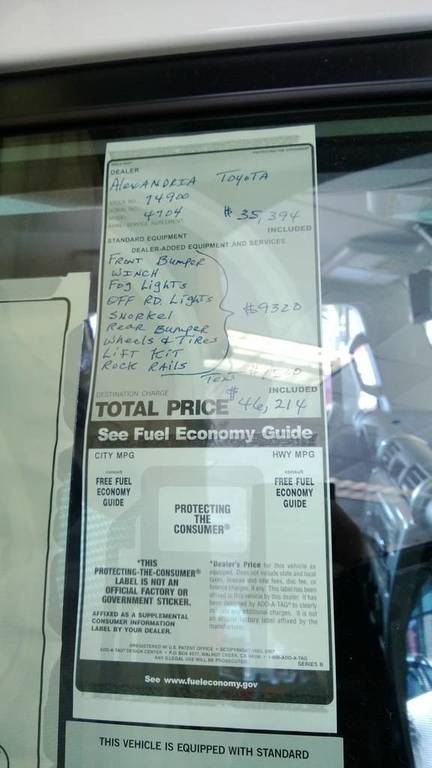 DEALER
ALEXANDRIA TOYOTA
STOCK NO. 74900
4704 # 35,394
INCLUDED
STANDARD EQUIPMENT
DEALER-ADDED EQUIPMENT AND SERVICES
FRONT BUMPER
WINCH
FOG LIGHTS
OFF RD. LIGHTS
SNORKEL $9320
REAR BUMPER
WHEELS & TIRES
LIFT KIT
ROCK RAILS
DESTINATION CHARGE INCLUDED
TOTAL PRICE $46,214
See Fuel Economy Guide
CITY MPG HWY MPG
consult consult
FREE FUEL ECONOMY GUIDE
FREE FUEL ECONOMY GUIDE
PROTECTING
THE
CONSUMER®
*THIS
PROTECTING-THE-CONSUMER®
LABEL IS NOT AN
OFFICIAL FACTORY OR
GOVERNMENT STICKER.
AFFIXED AS A SUPPLEMENTAL
CONSUMER INFORMATION
LABEL BY YOUR DEALER.
*Dealer's Price for this vehicle as
equipped. Does not include state and local
taxes, license and title fees, doc fee, or
finance charges, if any. This label has been
affixed to this vehicle by this dealer. It has
been designed by ADD-A-TAG® to clearly
additional charges. It is not
an official factory label affixed by the
manufacturer.
®REGISTERED W/ U.S. PATENT OFFICE
ADD-A-TAG® DESIGN CENTER • P.O. BOX
ANY ILLEGAL USE WILL BE PROSECUTED.
SERIES B
See www.fueleconomy.gov
THIS VEHICLE IS EQUIPPED WITH STANDARD